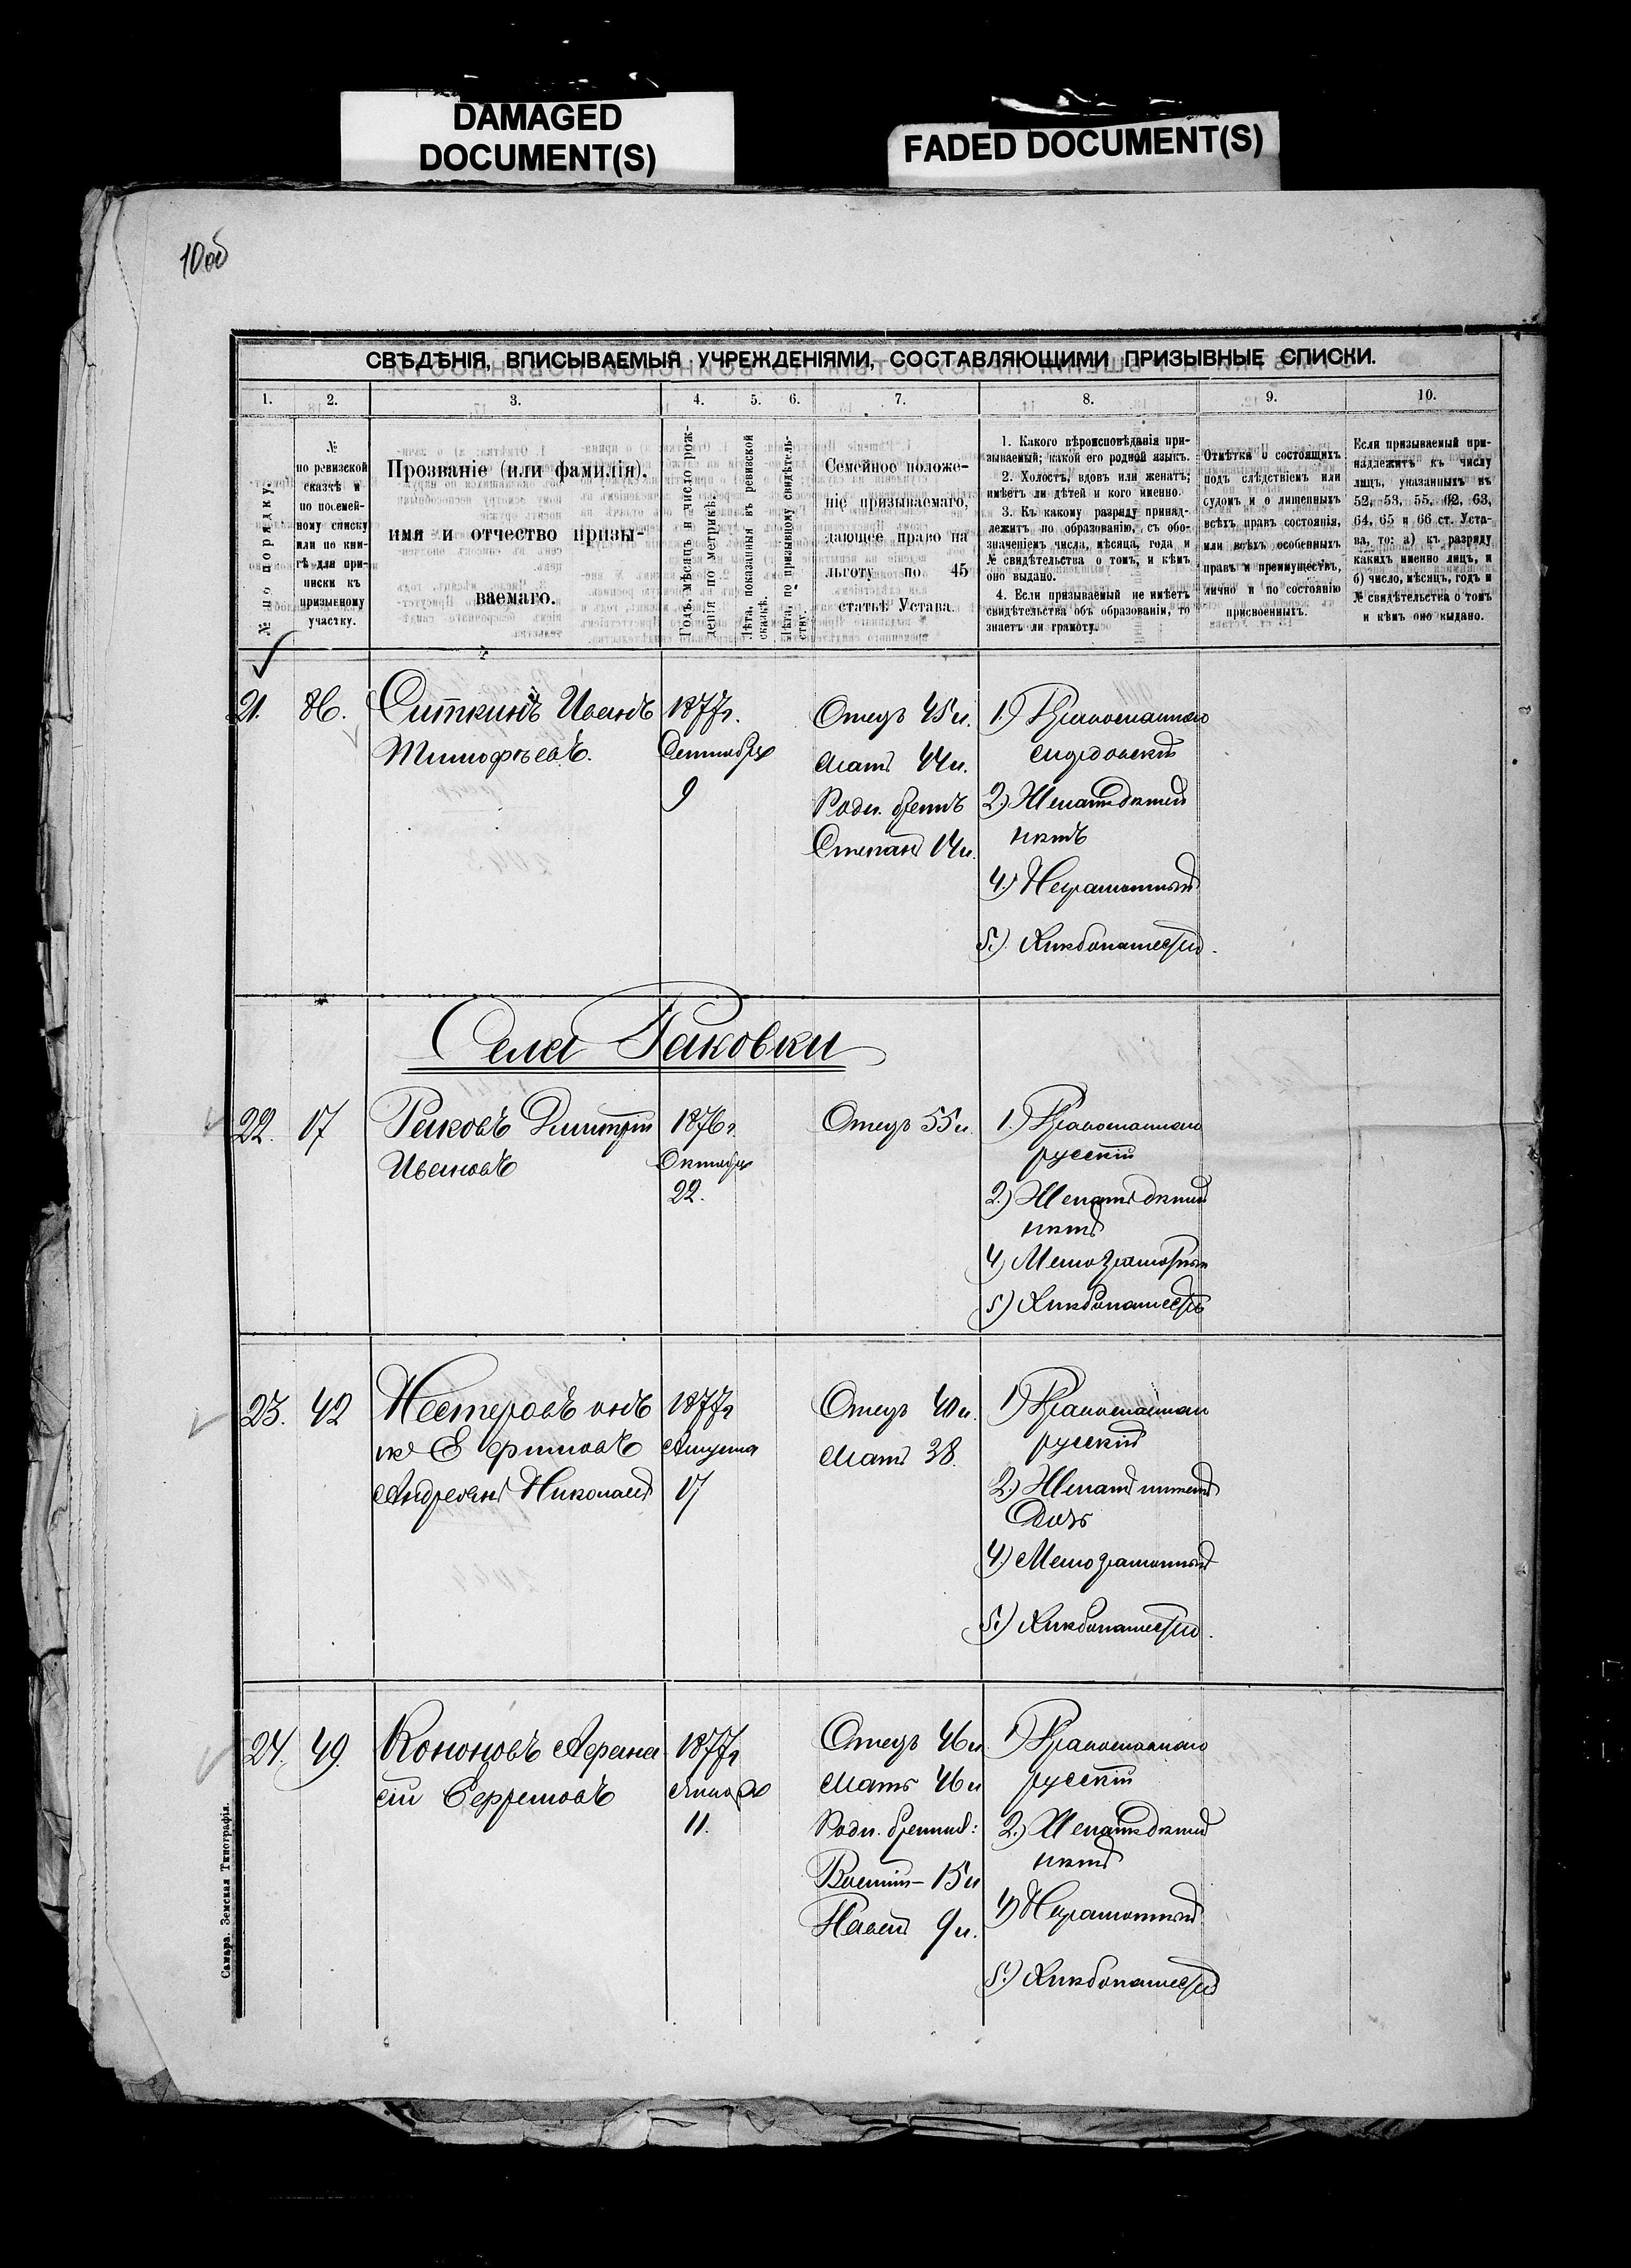 DAMAGED
DOCUMENT(S)
FADED DOCUMENT(S)
10об
СВѢДѢНІЯ, ВПИСЫВАЕМЫЯ УЧРЕЖДЕНІЯМИ, СОСТАВЛЯЮЩИМИ ПРИЗЫВНЫЕ СПИСКИ.
1. 2. 3. 4. 5. 6. 7. 8. 9. 10.
№ по порядку.
№
по ревизской
сказкѣ и
по посемей-
ному списку
или по кни-
гѣ для при-
писки къ
призывному
участку.
Прозваніе (или фамилія),
имя и отчество призы-
ваемаго.
Годъ, мѣсяцъ и число рож-
денія по метрикѣ.
Лѣта, показанныя въ ревизской
сказкѣ.
Лѣта, по призывному свидѣтель-
ству.
Семейное положе-
ніе призываемаго,
дающее право на
льготу по 45
статьѣ Устава.
1. Какого вѣроисповѣданія при-
зываемый; какой его родной языкъ.
2. Холостъ, вдовъ или женатъ;
имѣетъ ли дѣтей и кого именно.
3. Къ какому разряду принад-
лежитъ по образованію, съ обо-
значеніемъ числа, мѣсяца, года и
№ свидѣтельства о томъ, и кѣмъ
оно выдано.
4. Если призываемый не имѣетъ
свидѣтельства объ образованіи, то
знаетъ ли грамоту.
Отмѣтка о состоящихъ
подъ слѣдствіемъ или
судомъ и о лишенныхъ
всѣхъ правъ состоянія,
или всѣхъ особенныхъ
правъ и преимуществъ,
лично и по состоянію
присвоенныхъ.
Если призываемый при-
надлежитъ къ числу
лицъ, указанныхъ въ
52, 53, 55, 62, 63,
64, 65 и 66 ст. Уста-
ва, то: а) къ разряду
какихъ именно лицъ, и
б) число, мѣсяцъ, годъ и
№ свидѣтельства о томъ
и кѣмъ оно выдано.
21.
Ситкинъ Иванъ
Тимофѣевъ.
1877г.
Сентября
9
Отецъ 45 л.
Мать 44 л.
Родн. братъ
Степанъ 14 л.
1.) Православнаго
мордовскій
2.) Женатъ дѣтей
нѣтъ
4.) Неграмотный
5.) Хлѣбопашецъ
Села Раковки
22. 17
Раковъ Дмитрій
Ивановъ
1876г.
Октября
22.
Отецъ 55 л.
1.) Православнаго
русскій
2.) Женатъ дѣтей
нѣтъ
4) Малограмотный
5) Хлѣбопашецъ
23. 42
Нестеровъ онъ
же Ефимовъ
Андреянъ Николаевъ
1877г
Августа
17
Отецъ 40 л.
Мать 38.
1) Православнаго
русскій
2.) Женатъ имѣетъ
дочь
4.) Малограмотный
5.) Хлѣбопашецъ
24. 49.
Кононовъ Афана
сій Ефремовъ
1877г
Января
11.
Отецъ 46 л
Мать 46 л
Родн. братья:
Василій - 15 л
Павелъ 9 л.
1) Православнаго
русскій
2.) Женатъ дѣтей
нѣтъ
4) Неграмотный
5.) Хлѣбопашецъ
Самара. Земская Типографія.